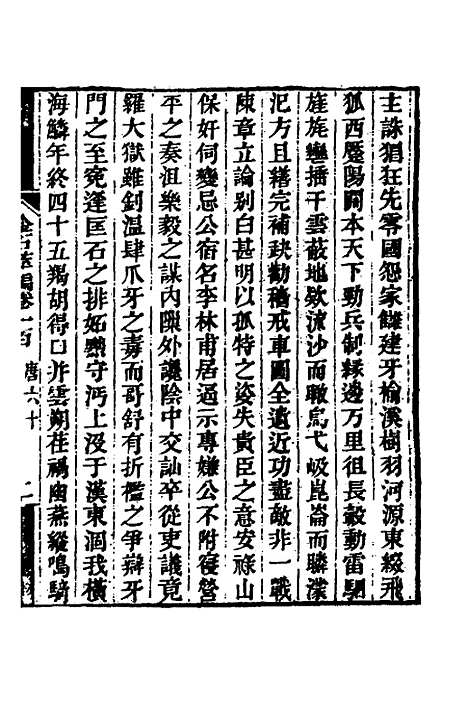 主誅猖狂先零國怨家讎建牙榆溪樹羽河源東綴飛
狐西壓陽關本天下勁兵制緣邊万里徂長轂動雷駟
旌旄蠻播干雲蔽地欻流沙而瞰烏弋岋崑崙而驎濛
汜方且繕完補缺勸穡戒車圖全遺近功盡敵非一戰
陳章立論別白甚明以孤特之姿失貴臣之意安祿山
保奸伺變忌公宿名李林甫居逼示專嫌公不附復營
平之奏沮樂毅之謀內隙外讒陰中交訕卒從吏議竟
羅大獄雖釗溫肆爪牙之毒而哥舒有折檻之爭辯牙
門之至寃逢匡石之排妬鸞守沔上没于漢東涸我橫
海鱗年終四十五羯胡得口并雲朔荏禍幽燕縱鳴騎
金石萃編卷一百 唐六十 二